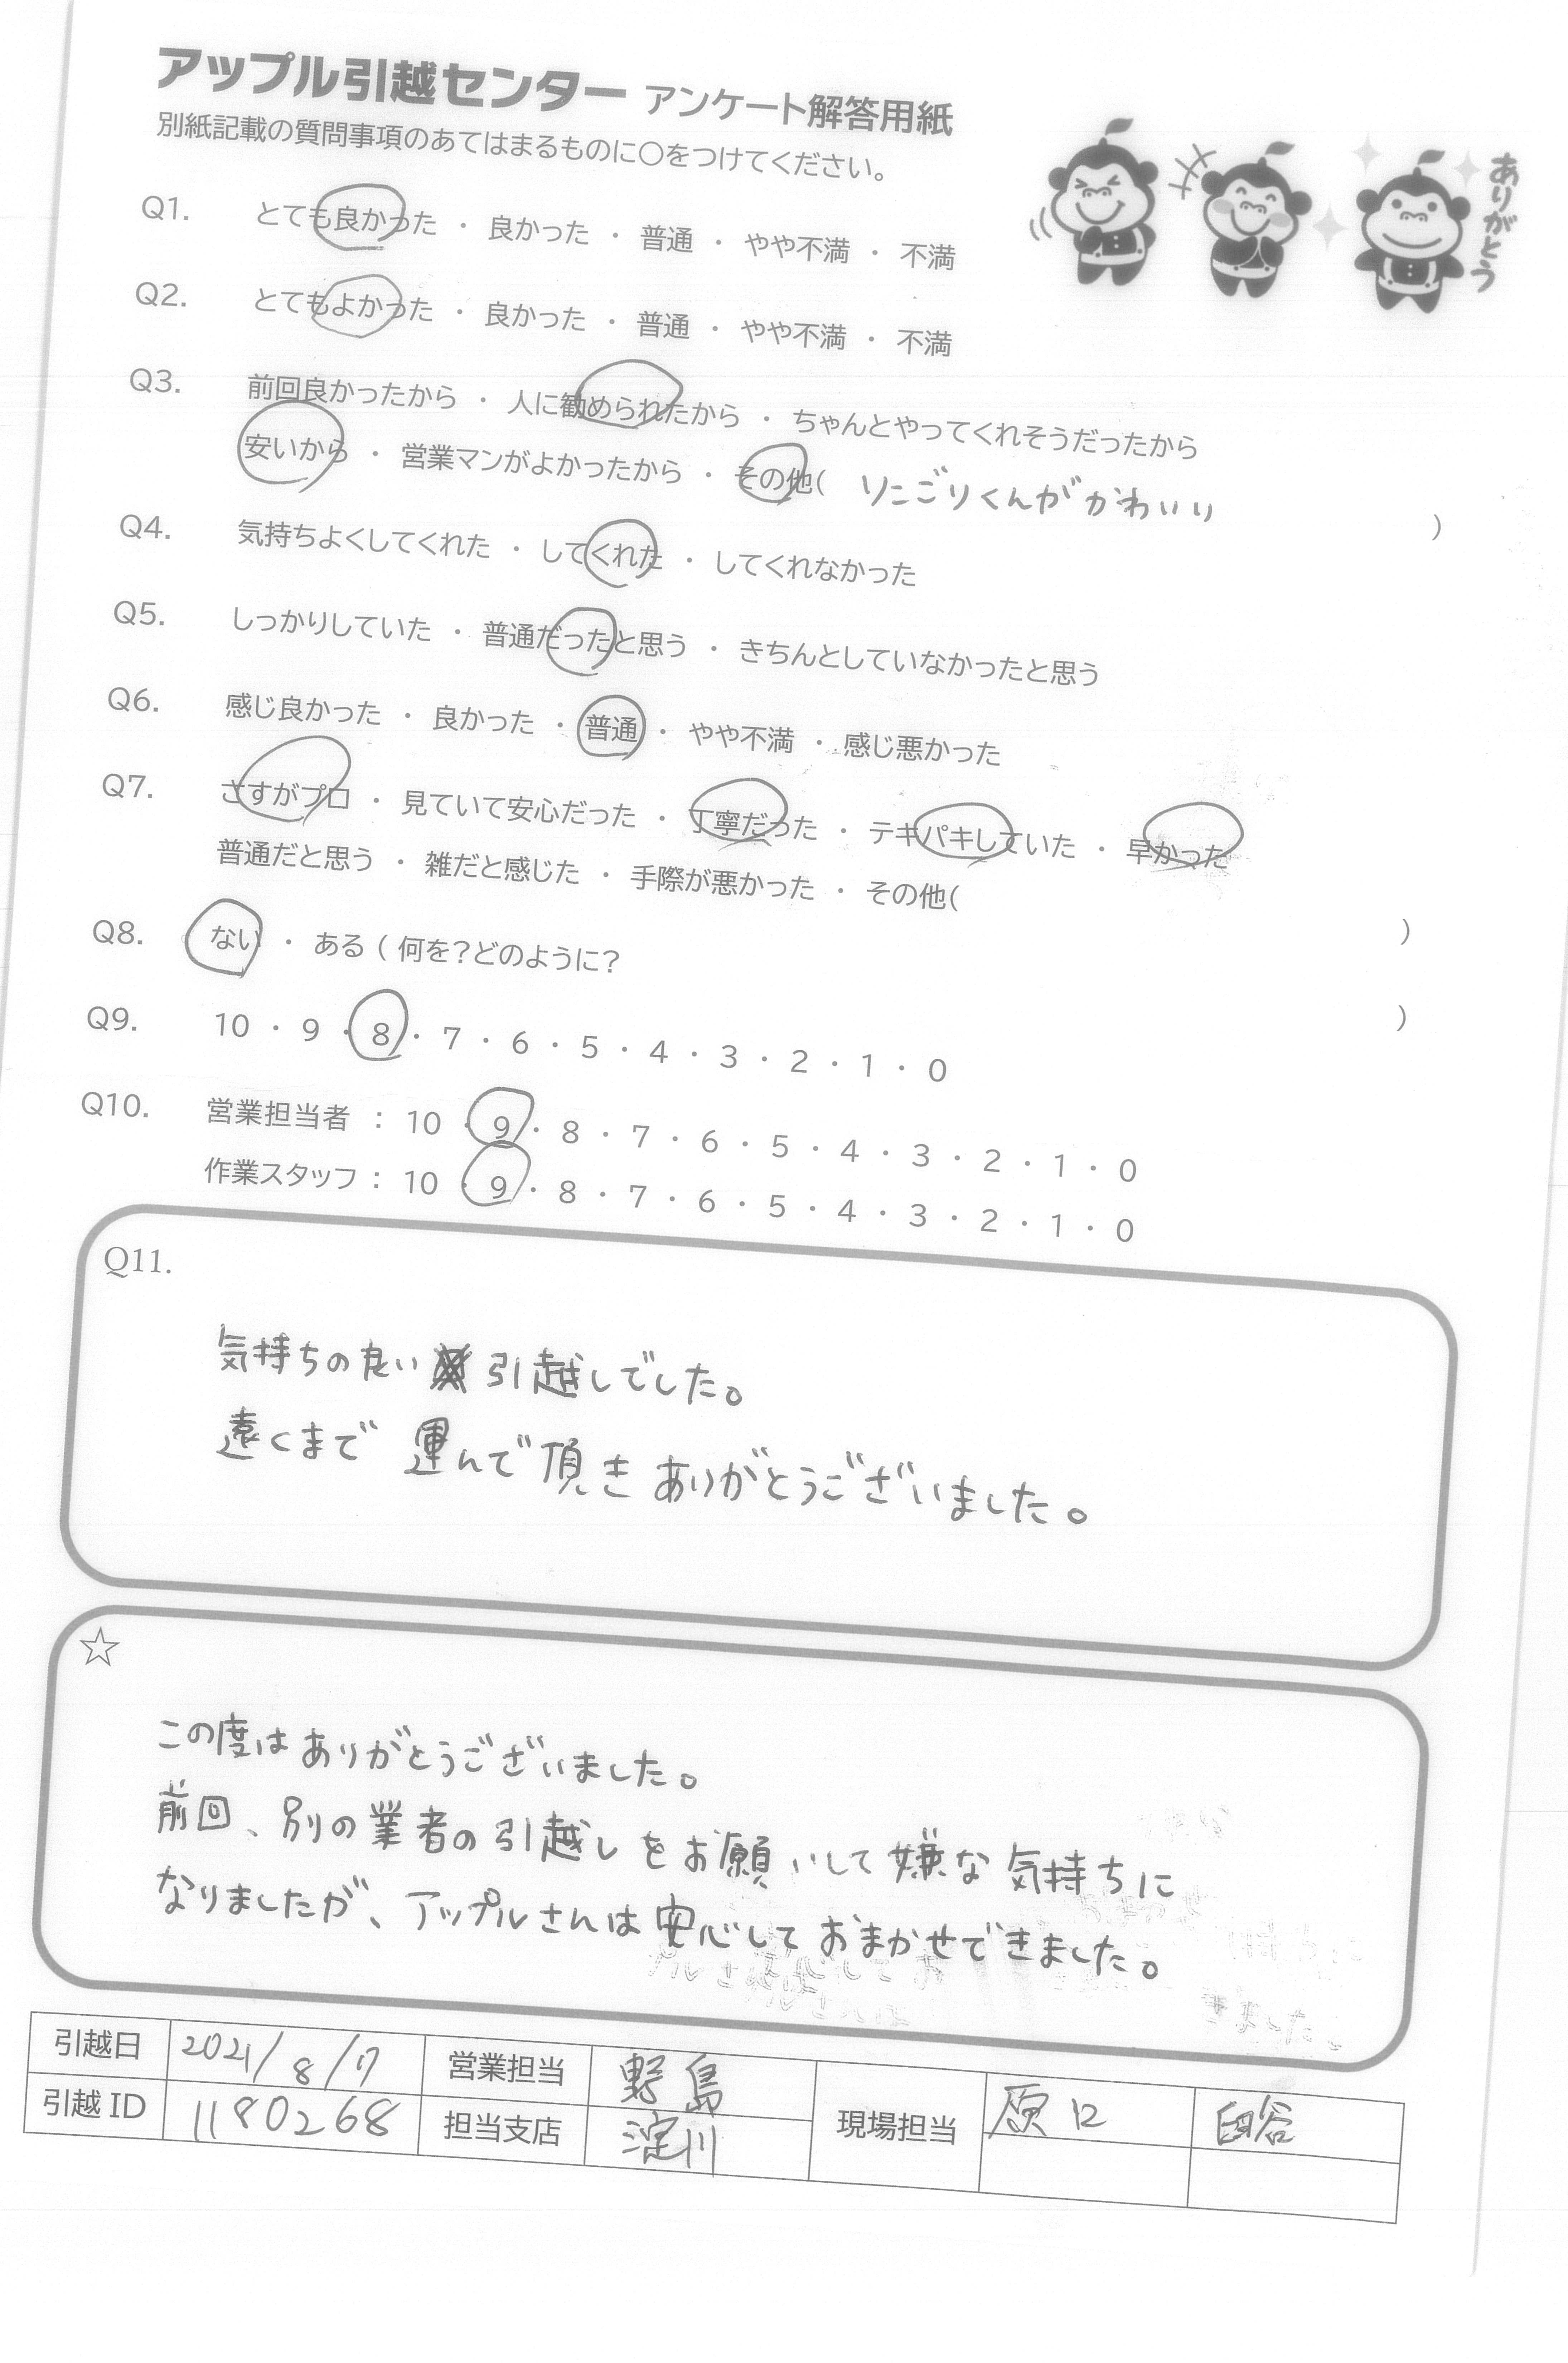 アップル引越センター アンケート解答用紙
別紙記載の質問事項のあてはまるものに〇をつけてください。
ありがとう
Q1. とても良かった ・ 良かった ・ 普通 ・ やや不満 ・ 不満
Q2. とてもよかった ・ 良かった ・ 普通 ・ やや不満 ・ 不満
Q3. 前回良かったから ・ 人に勧められたから ・ ちゃんとやってくれそうだったから
安いから ・ 営業マンがよかったから ・ その他( りんごりくんがかわいい )
Q4. 気持ちよくしてくれた ・ してくれた ・ してくれなかった
Q5. しっかりしていた ・ 普通だったと思う ・ きちんとしていなかったと思う
Q6. 感じ良かった ・ 良かった ・ 普通 ・ やや不満 ・ 感じ悪かった
Q7. さすがプロ ・ 見ていて安心だった ・ 丁寧だった ・ テキパキしていた ・ 早かった
普通だと思う ・ 雑だと感じた ・ 手際が悪かった ・ その他( )
Q8. ない ・ ある ( 何を?どのように? )
Q9. 10 ・ 9 ・ 8 ・ 7 ・ 6 ・ 5 ・ 4 ・ 3 ・ 2 ・ 1 ・ 0
Q10. 営業担当者 : 10 ・ 9 ・ 8 ・ 7 ・ 6 ・ 5 ・ 4 ・ 3 ・ 2 ・ 1 ・ 0
作業スタッフ : 10 ・ 9 ・ 8 ・ 7 ・ 6 ・ 5 ・ 4 ・ 3 ・ 2 ・ 1 ・ 0
Q11.
気持ちの良い 引越しでした。
遠くまで 運んで頂き ありがとうございました。
☆
この度は ありがとうございました。
前回、別の業者の引越しをお願いして嫌な気持ちに
なりましたが、アップルさんは安心しておまかせできました。
引越日 2021/8/17 営業担当 野島 現場担当 原口 臼谷
引越ID 1180268 担当支店 淀川